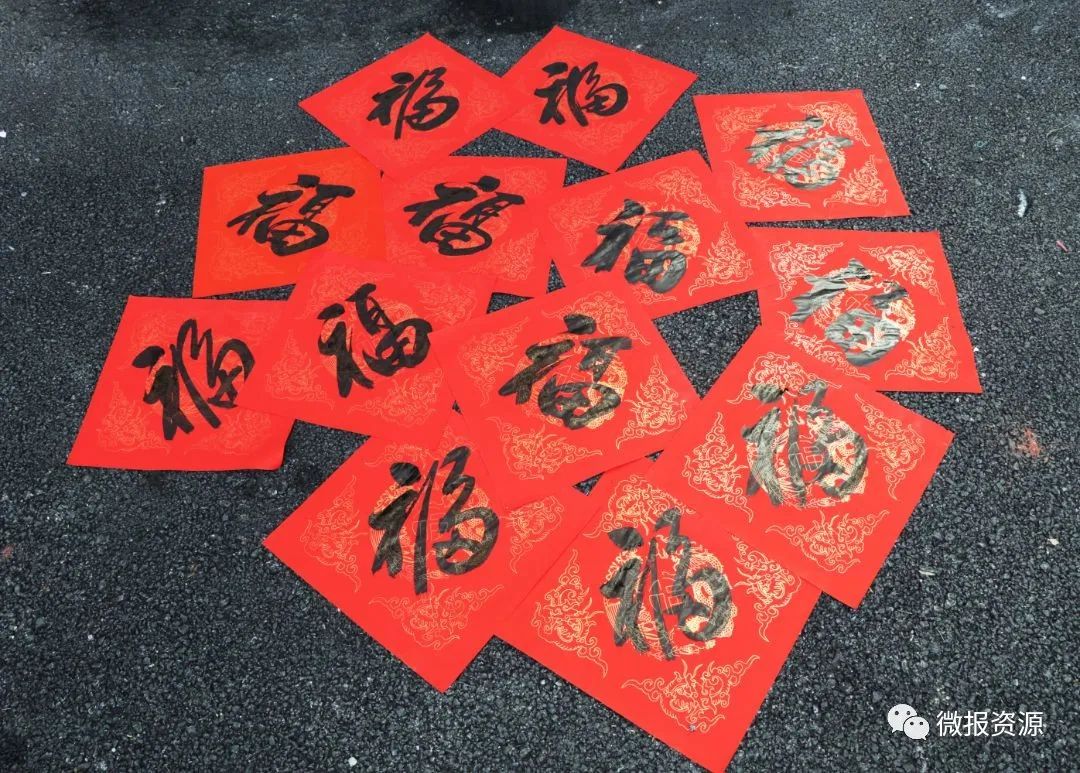 福
福
福
福
福
福
福
福
福
福
福
福
福
微报资源